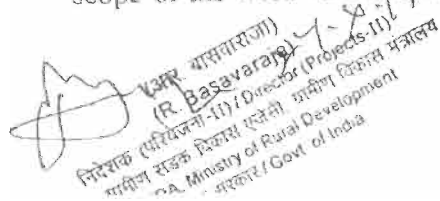 scope of the
(आर. बासवाराजा)
(R. Basavaraja)
निदेशक (परियोजना-II) / Director (Projects-II)
ग्रामीण सड़क विकास एजेंसी, ग्रामीण विकास मंत्रालय
Ministry of Rural Development
सरकार / Govt. of India